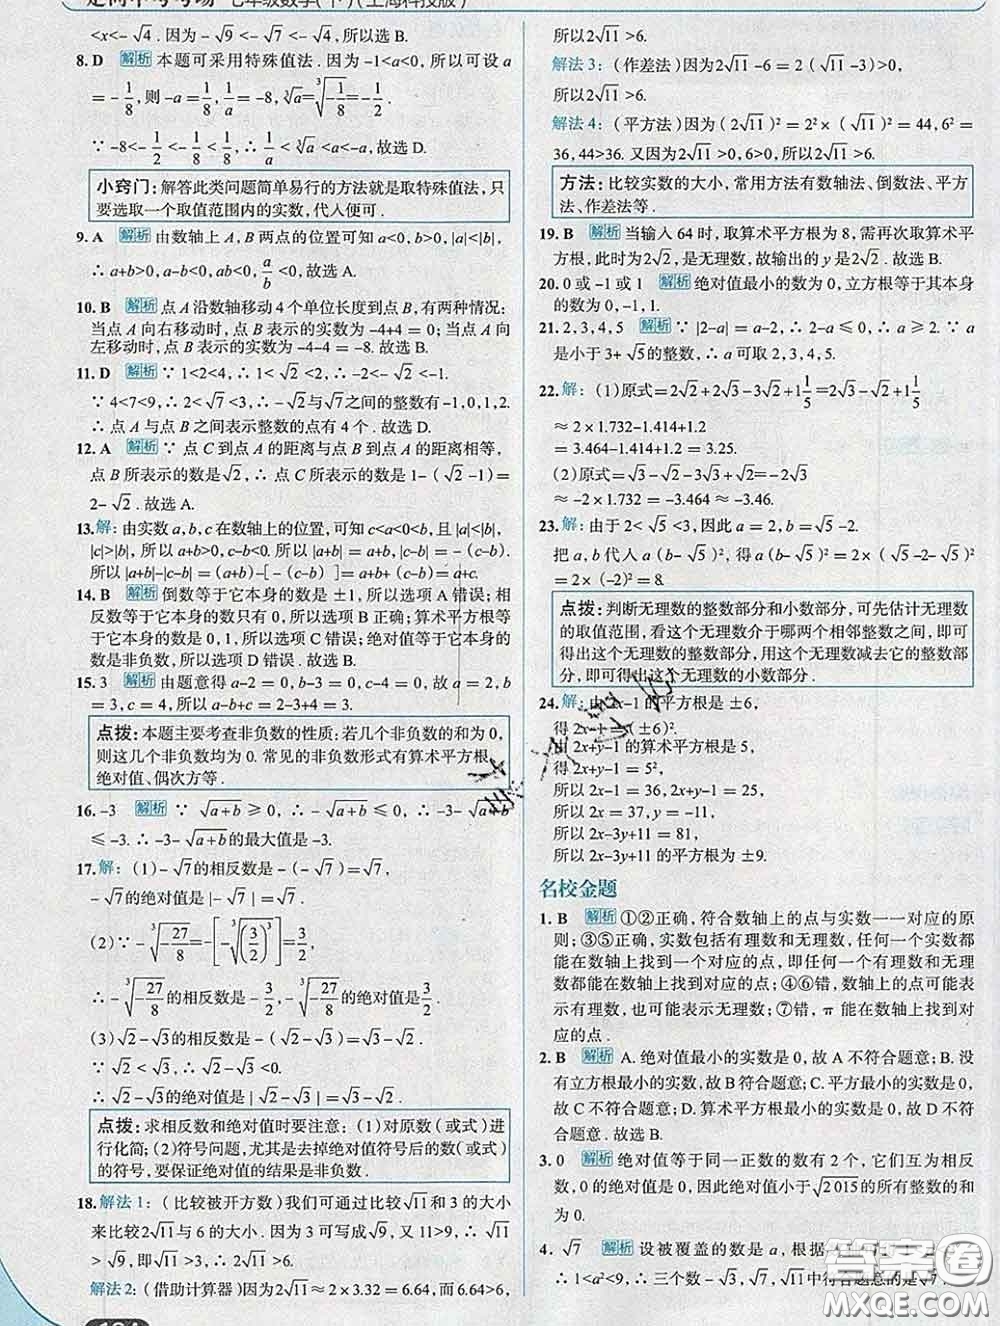 走向中考考场 七年级数学(下)(上海科技版)
<x<-√4 . 因为 - √9 <- √7 <- √4, 所以选 B.
8. D 解析 本题可采用特殊值法 . 因为 -1<a<0, 所以可设 a
= -1/8, 则 -a = 1/8, 1/a = -8, ∛a = ∛(-1/8) = -1/2 .
∵ -8<-1/2<-1/8<1/8, ∴ 1/a < ∛a <a<-a. 故选 D.
小窍门: 解答此类问题简单易行的方法就是取特殊值法, 只
要选取一个取值范围内的实数, 代人便可 .
9. A 解析 由数轴上 A, B 两点的位置可知 a<0, b>0, |a|<|b|,
∴ a+b>0, a-b<0, ab<0, a/b <0, 故选 A.
10. B 解析 点 A 沿数轴移动 4 个单位长度到点 B, 有两种情况:
当点 A 向右移动时, 点 B 表示的实数为 -4+4 = 0; 当点 A 向
左移动时, 点 B 表示的实数为 -4-4 = -8. 故选 B.
11. D 解析 ∵ 1<2<4, ∴ 1< √2 <2, ∴ -2<- √2 <-1.
∵ 4<7<9, ∴ 2< √7 <3, ∴ - √2 与 √7 之间的整数有 -1, 0, 1, 2.
∴ 点 A 与点 B 之间表示整数的点有 4 个 . 故选 D.
12. A 解析 ∵ 点 C 到点 A 的距离与点 B 到点 A 的距离相等,
点 B 所表示的数是 √2, ∴ 点 C 所表示的数是 1- ( √2 -1) =
2- √2 . 故选 A.
13. 解: 由实数 a, b, c 在数轴上的位置, 可知 c<a<0<b, 且 |a|<|b|,
|c|>|b|, 所以 a+b>0, c-b<0. 所以 |a+b| = a+b, |c-b| = - (c-b).
所以 |a+b|-|c-b| = (a+b)-[ - (c-b)] = (a+b)+(c-b)= a+c.
14. B 解析 倒数等于它本身的数是 ±1, 所以选项 A 错误; 相
反数等于它本身的数只有 0, 所以选项 B 正确; 算术平方根等
于它本身的数是 0, 1, 所以选项 C 错误; 绝对值等于它本身的
数是非负数, 所以选项 D 错误 . 故选 B.
15. 3 解析 由题意得 a-2 = 0, b-3 = 0, c-4 = 0, 故 a = 2, b =
3, c = 4, 所以 a-b+c = 2-3+4 = 3.
点拨: 本题主要考查非负数的性质: 若几个非负数的和为 0,
则这几个非负数均为 0. 常见的非负数形式有算术平方根、
绝对值、偶次方等 .
16. -3 解析 ∵ √(a+b) ≥ 0, ∴ - √(a+b) ≤ 0, ∴ -3- √(a+b)
≤ -3. ∴ -3- √(a+b) 的最大值是 -3.
17. 解: (1) - √7 的相反数是 √7,
- √7 的绝对值是 | - √7 | = √7 .
(2)∵ - ∛(-27/8) = - [ - ∛((3/2)³) ] = 3/2,
∴ - ∛(-27/8) 的相反数是 - 3/2, - ∛(-27/8) 的绝对值是 3/2 .
(3) √2 - √3 的相反数是 √3 - √2 .
∵ √2 < √3, ∴ √2 - √3 <0.
∴ √2 - √3 的绝对值是 | √2 - √3 | = √3 - √2 .
点拨: 求相反数和绝对值时要注意: (1) 对原数 (或式) 进
行化简; (2) 符号问题, 尤其是去掉绝对值符号后的数 (或式)
的符号, 要保证绝对值的结果是非负数 .
18. 解法 1: (比较被开方数) 我们可通过比较 √11 和 3 的大小
来比较 2√11 与 6 的大小 . 因为 3 可写成 √9, 又 11>9, ∴ √11
> √9, 即 √11 >3, ∴ 2√11 >6.
解法 2: (借助计算器) 因为 2√11 ≈ 2 × 3.32 = 6.64, 而 6.64>6,
所以 2√11 >6.
解法 3: (作差法) 因为 2√11 -6 = 2 ( √11 -3) >0,
所以 2√11 >6.
解法 4: (平方法) 因为 (2√11 )² = 2² × ( √11 )² = 44, 6² =
36, 44>36. 又因为 2√11 >0, 6>0, 所以 2√11 >6.
方法: 比较实数的大小, 常用方法有数轴法、倒数法、平方
法、作差法等 .
19. B 解析 当输入 64 时, 取算术平方根为 8, 需再次取算术平
方根, 此时为 2√2, 是无理数, 故输出的 y 是 2√2 . 故选 B.
20. 0 或 -1 或 1 解析 绝对值最小的数为 0, 立方根等于其本身
的数为 0, -1, 1.
21. 2, 3, 4, 5 解析 ∵ |2-a| = a-2, ∴ 2-a ≤ 0, ∴ a ≥ 2. ∵ a
是小于 3+ √5 的整数, ∴ a 可取 2, 3, 4, 5.
22. 解: (1) 原式 = 2√2 + 2√3 - 3√2 + 1 1/5 = 2√3 - √2 + 1 1/5
≈ 2 × 1.732-1.414+1.2
= 3.464-1.414+1.2 = 3.25.
(2) 原式 = √3 - √2 - 3√3 + √2 = -2√3
≈ -2 × 1.732 = -3.464 ≈ -3.46.
23. 解: 由于 2< √5 <3, 因此 a = 2, b = √5 -2.
把 a, b 代人 a (b- √5 )², 得 a (b- √5 )² = 2 × ( √5 -2- √5 )²
= 2× (-2)² = 8.
点拨: 判断无理数的整数部分和小数部分, 可先估计无理数
的取值范围, 看这个无理数介于哪两个相邻整数之间, 即可
得出这个无理数的整数部分, 用这个无理数减去它的整数部
分, 即可得出这个无理数的小数部分 .
24. 解: 由 2x-1 的平方根是 ±6,
得 2x-1 = (±6)².
由 2x+y-1 的算术平方根是 5,
得 2x+y-1 = 5²,
所以 2x-1 = 36, 2x+y-1 = 25,
所以 2x = 37, y = -11,
所以 2x-3y+11 = 81,
所以 2x-3y+11 的平方根为 ±9.
名校金题
1. B 解析 ①②正确, 符合数轴上的点与实数一一对应的原
则; ③⑤正确, 实数包括有理数和无理数, 任何一个实数都
能在数轴上找到一个对应的点, 即任何一个有理数和无理
数都能在数轴上找到对应的点; ④⑥错, 数轴上的点可能表
示有理数, 也可能表示无理数; ⑦错, π 能在数轴上找到对
应的点 .
2. B 解析 A. 绝对值最小的实数是 0, 故 A 不符合题意; B. 没
有立方根最小的实数, 故 B 符合题意; C. 平方最小的实数是
0, 故 C 不符合题意; D. 算术平方根最小的实数是 0, 故 D 不
符合题意 . 故选 B.
3. 0 解析 绝对值等于同一正数的数有 2 个, 它们互为相反
数, 0 的绝对值是 0, 因此绝对值小于 √2 015 的所有整数的和
为 0.
4. √7 解析 设被覆盖的数是 a,
∴ 1<a²<9, ∴ 三个数 - √3, √7, √11 中符合题意的是 √7 .
答案圈
MXQE.COM